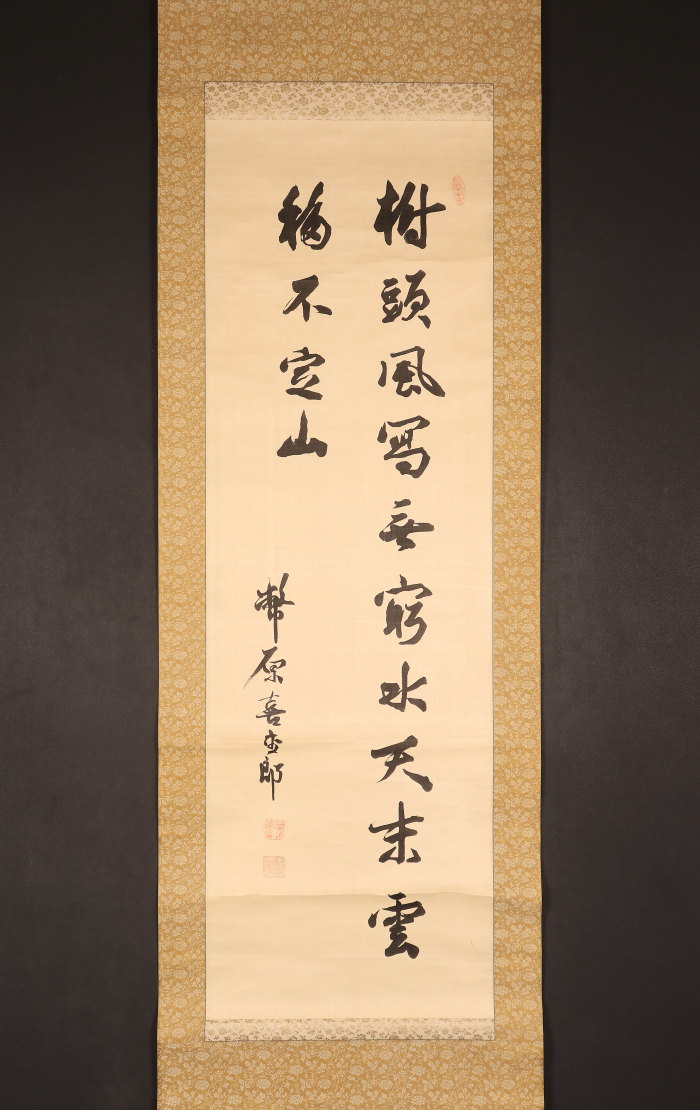 樹頭風寫無窮水天末雲
移不定山
幣原喜重郎